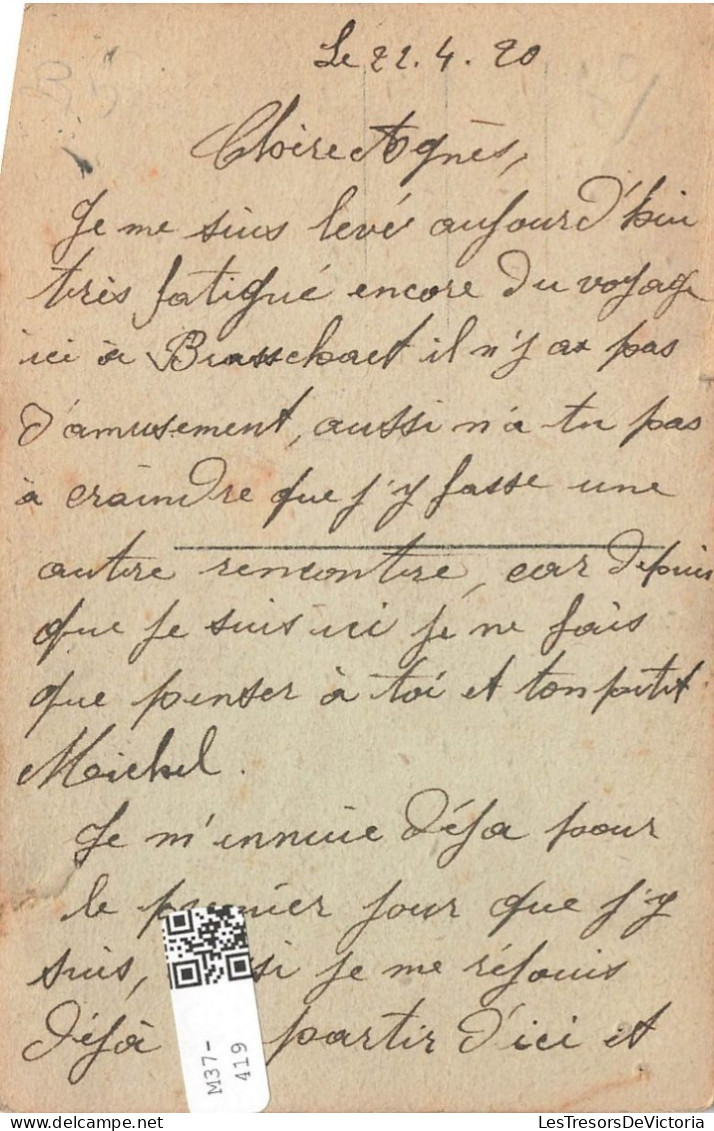 Le 22.4.20
Chère Agnès,
Je me suis levé aujourd'hui
très fatigué encore du voyage
ici à Brasschaet il n'y a pas
d'amusement, aussi n'a tu pas
à craindre que j'y fasse une
autre rencontre, car depuis
que je suis ici je ne fais
que penser à toi et ton petit
Meichel.
Je m'ennuie déja pour
le premier jour que j'y
suis, si je me réjouis
déjà partir d'ici et
M37-
419
LesTresorsDeVictoria